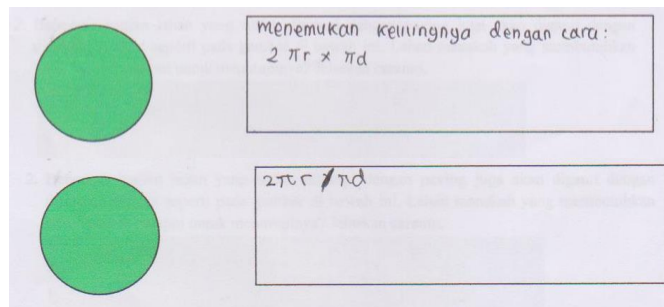 menemukan kelilingnya dengan cara:
2 πr × πd
2πr / πd